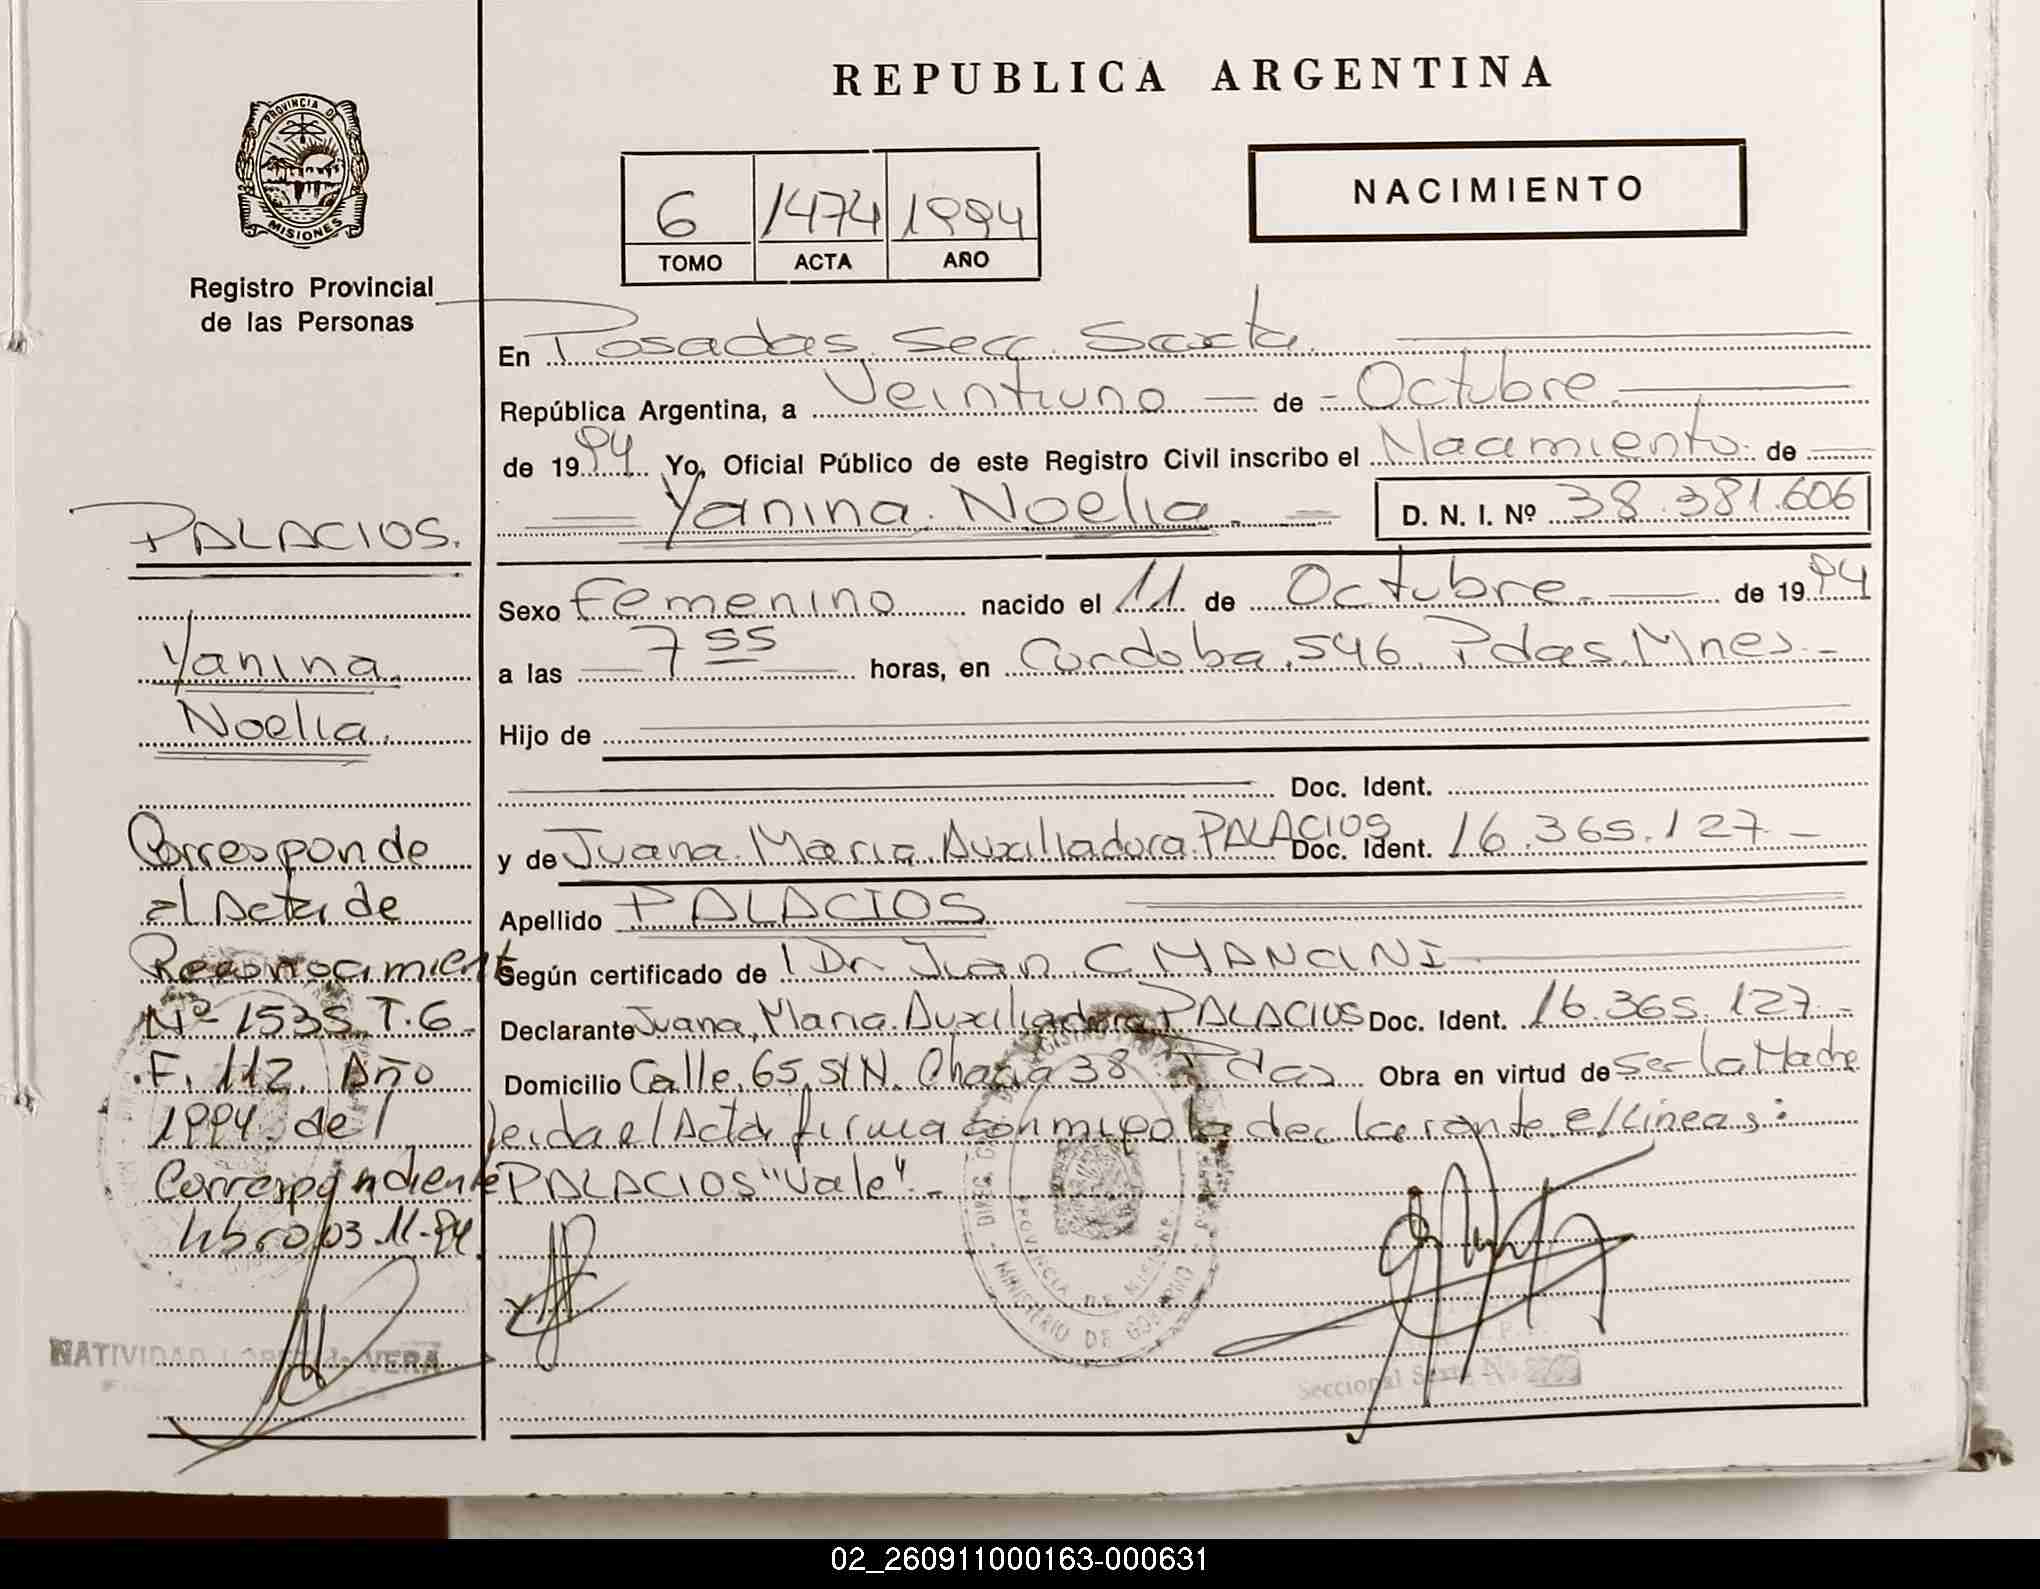 REPUBLICA ARGENTINA
PROVINCIA DE
MISIONES
Registro Provincial
de las Personas
6 1474 1994
TOMO ACTA AÑO
NACIMIENTO
En Posadas. Secc. Sexta.
República Argentina, a Veintiuno de Octubre.
de 1994 Yo, Oficial Público de este Registro Civil inscribo el Nacimiento. de
Yanina. Noelia. D. N. I. Nº 38.381.606
Sexo Femenino nacido el 11 de Octubre. de 1994
a las 7 55 horas, en Cordoba. 546. Pdas. Mnes.
Hijo de
Doc. Ident.
y de Juana. Maria. Auxiliadora. PALACIOS Doc. Ident. 16.365.127
Apellido PALACIOS
Según certificado de Dr Juan C MANCINI
Declarante Juana. Maria. Auxiliadora PALACIOS Doc. Ident. 16.365.127
Domicilio Calle. 65. S/N. Chacra 38 Pdas Obra en virtud de ser la Madre
leida el Acta firma con migo la declarante. E/Lineas:
PALACIOS "Vale".
PALACIOS.
Yanina.
Noelia.
Corresponde
al Acta de
Reconocimient
Nº 1535 T. 6
F. 112. Año
1994. del
Correspondiente
libro 03.11-94.
NATIVIDAD LOPEZ de VERA
MINISTERIO DE GOBIERNO
PROVINCIA DE MISIONES
Seccional Sexta
02_260911000163-000631